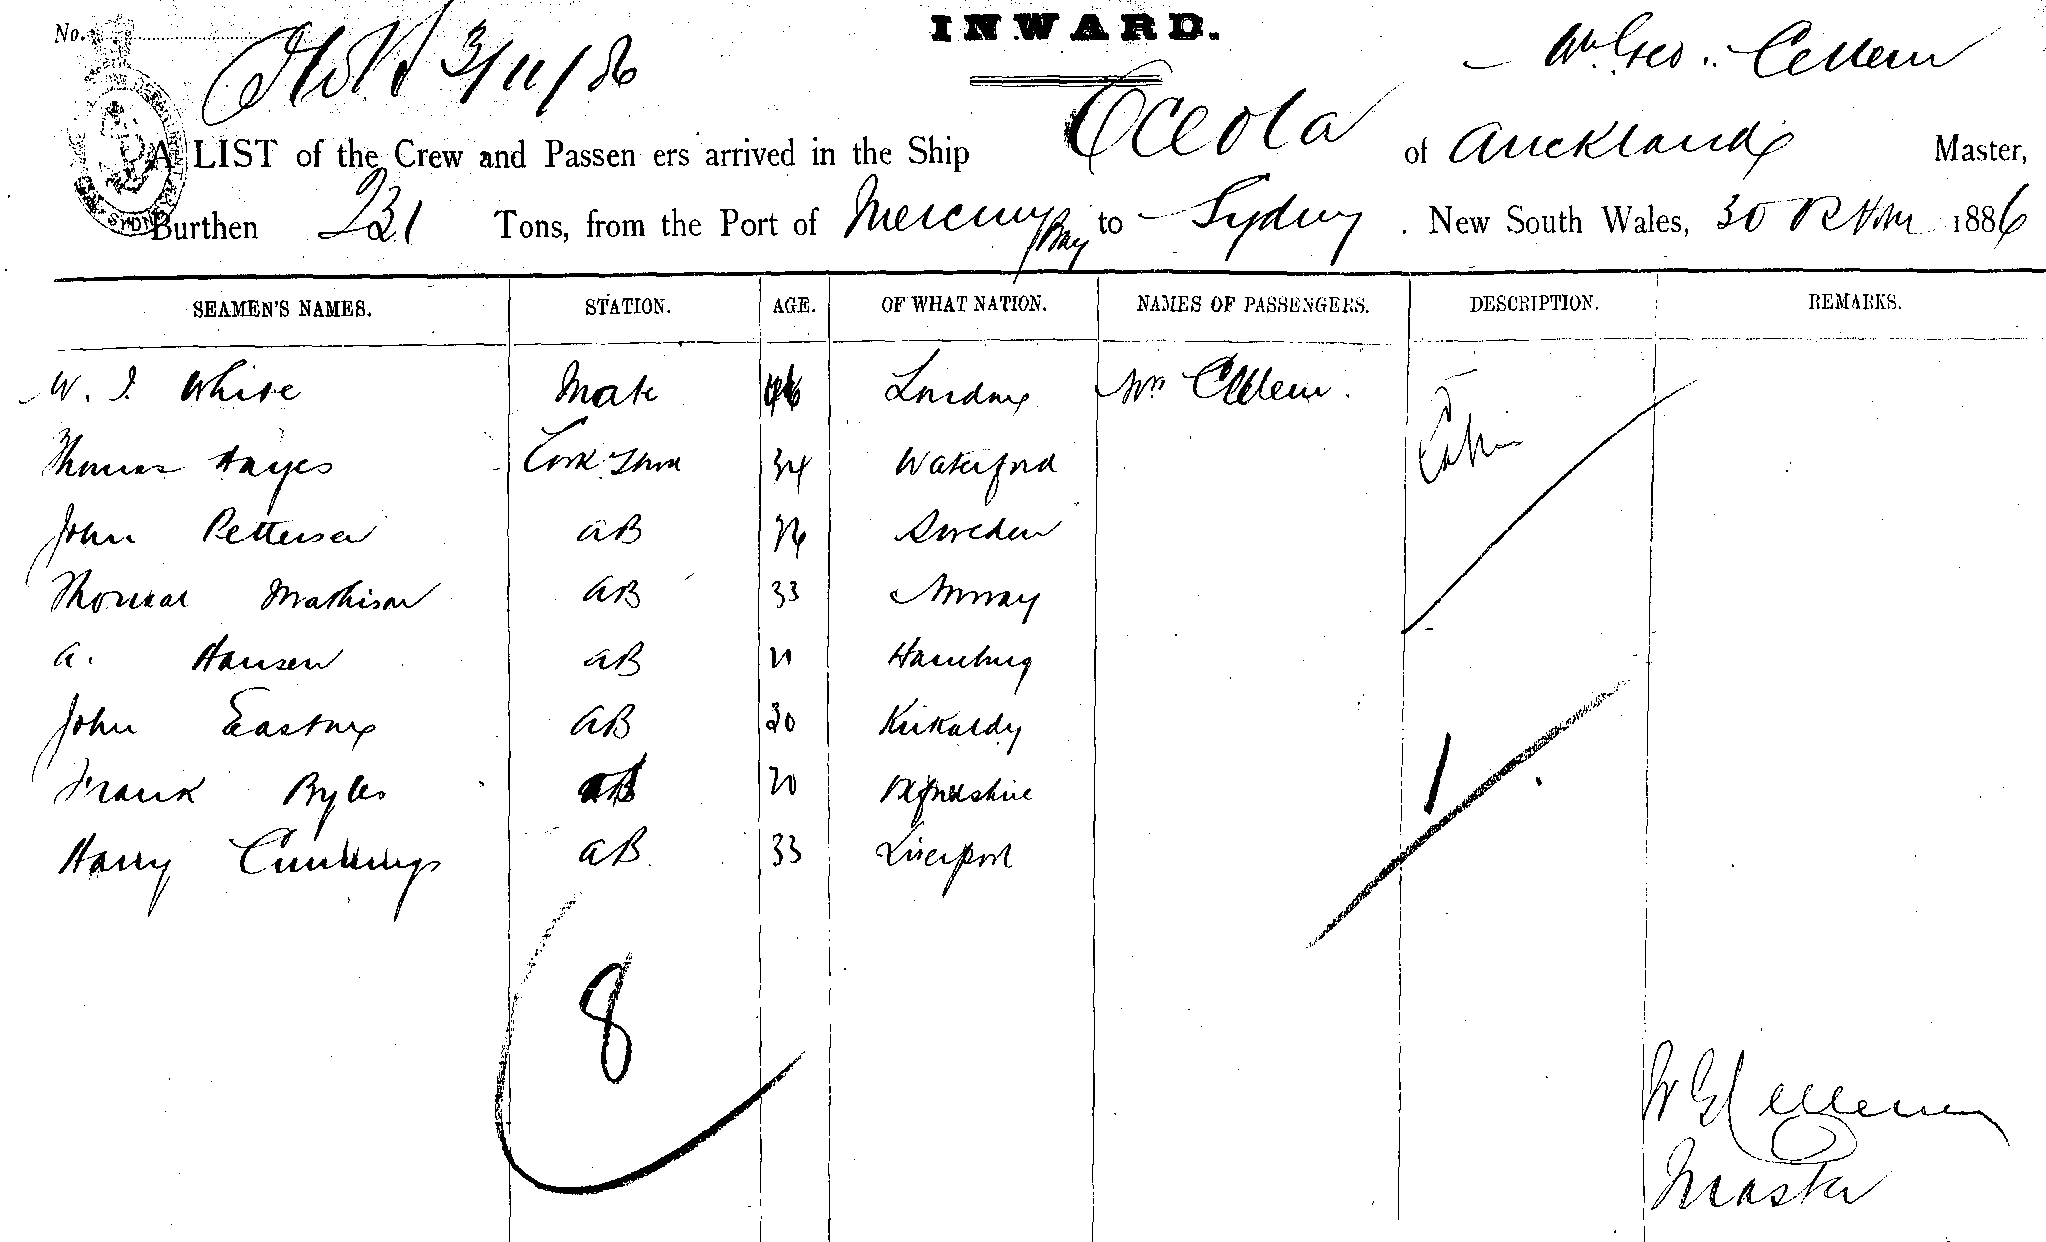 No.
INWARD.
3/11/86
Wm Geo. Cellem
A LIST of the Crew and Passen ers arrived in the Ship Oceola of Auckland Master,
Burthen 231 Tons, from the Port of Mercury Bay to Sydney . New South Wales, 30 1886
SEAMEN'S NAMES. STATION. AGE. OF WHAT NATION. NAMES OF PASSENGERS. DESCRIPTION. REMARKS.
W. J. White Mate 46 London Mrs Cellem. Cabin
Thomas Hayes Cook Stwd 34 Waterford
John Pettersen AB 36 Sweden
Thomas Mathison AB 33 Norway
A. Hansen AB 21 Hamburg
John Easton AB 30 Kirkaldy
Frank Byles AB 20 Oxfordshire
Harry Cummings AB 33 Liverpool
1
8
W G Cellem
Master